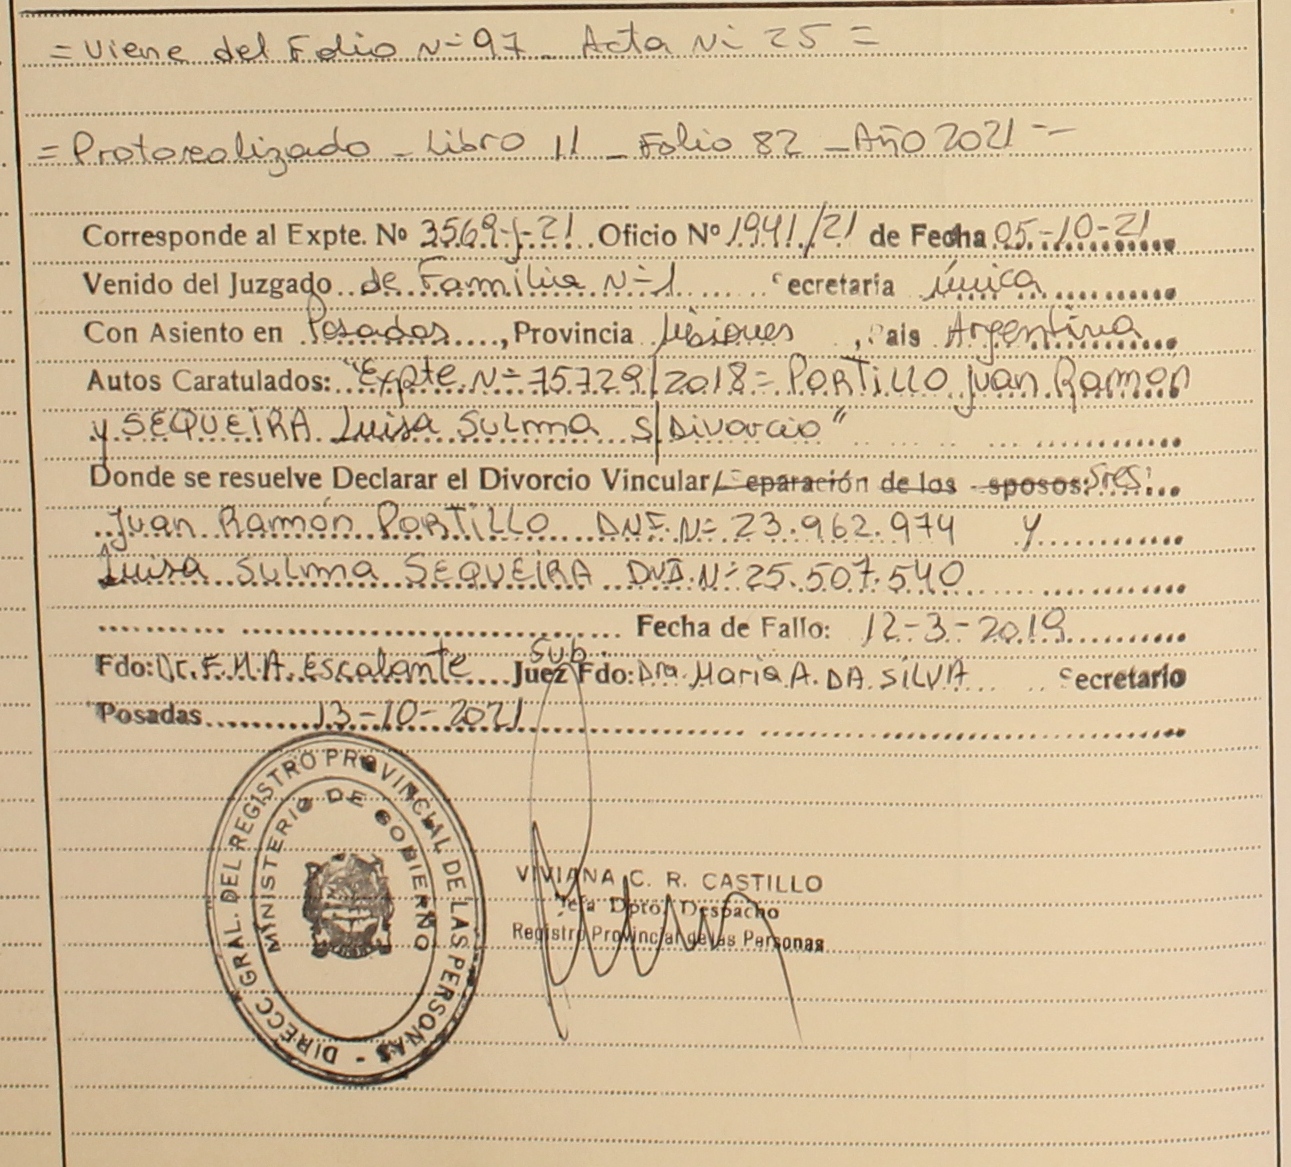 = Viene del Folio Nº 97 _ Acta Nº 25 =
= Protocolizado _ Libro 11 _ Folio 82 _ Año 2021 =
Corresponde al Expte. Nº 3569-J-21 Oficio Nº 1941/21 de Fecha 05-10-21
Venido del Juzgado de Familia Nº 1 Secretaria Única
Con Asiento en Posadas, Provincia Misiones, Pais Argentina
Autos Caratulados: "Expte. Nº 75729/2018 = PORTILLO Juan Ramón
y SEQUEIRA Luisa Sulma S/Divorcio"
Donde se resuelve Declarar el Divorcio Vincular/ Separación de los Esposos: Sres:
Juan Ramón PORTILLO DNI. Nº 23.962.974 y
Luisa Sulma SEQUEIRA DNI. Nº 25.507.540
Fecha de Fallo: 12-3-2019
Sub.
Fdo: Dr. F.M.A. Escalante Juez Fdo: Dra. Maria A. DA SILVA Secretario
Posadas 13-10-2021
DIRECC. GRAL. DEL REGISTRO PROVINCIAL DE LAS PERSONAS -
MINISTERIO DE GOBIERNO
VIVIANA C. R. CASTILLO
Jefa Dpto. Despacho
Registro Provincial de las Personas